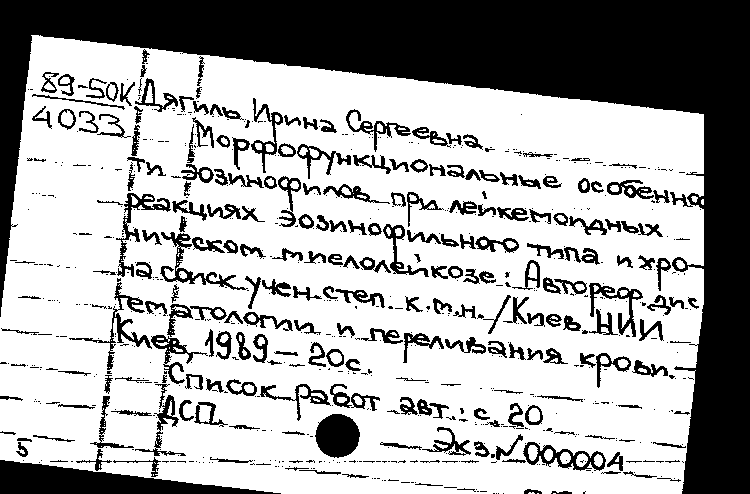 89-50К
4033
Дягиль, Ирина Сергеевна.
Морфофункциональные особенно
ти эозинофилов при лейкемоидных
реакциях эозинофильного типа и хро-
ническом миелолейкозе: Автореф. дис
на соиск. учен. степ. к.м.н. /Киев. НИИ
гематологии и переливания крови.—
Киев, 1989. — 20с.
Список работ авт.: с. 20.
ДСП.
Экз.№000004
5